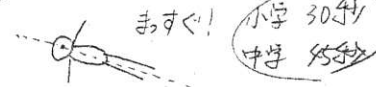 まっすぐ!
小学 30秒
中学 45秒